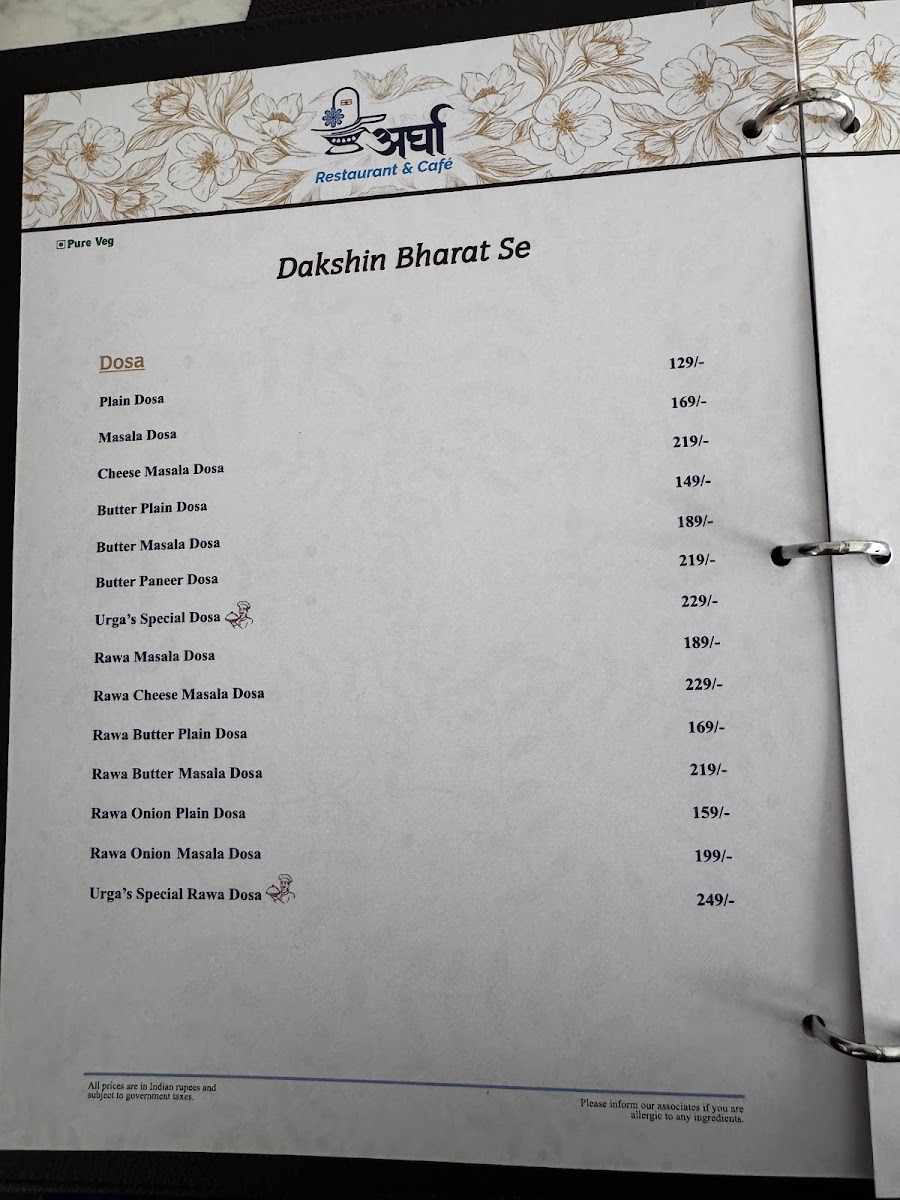 अर्घा
Restaurant & Café
Pure Veg
Dakshin Bharat Se
Dosa
129/-
Plain Dosa
169/-
Masala Dosa
219/-
Cheese Masala Dosa
149/-
Butter Plain Dosa
189/-
Butter Masala Dosa
219/-
Butter Paneer Dosa
229/-
Urga's Special Dosa
189/-
Rawa Masala Dosa
229/-
Rawa Cheese Masala Dosa
169/-
Rawa Butter Plain Dosa
219/-
Rawa Butter Masala Dosa
159/-
Rawa Onion Plain Dosa
199/-
Rawa Onion Masala Dosa
249/-
Urga's Special Rawa Dosa
All prices are in Indian rupees and
subject to government taxes.
Please inform our associates if you are
allergic to any ingredients.